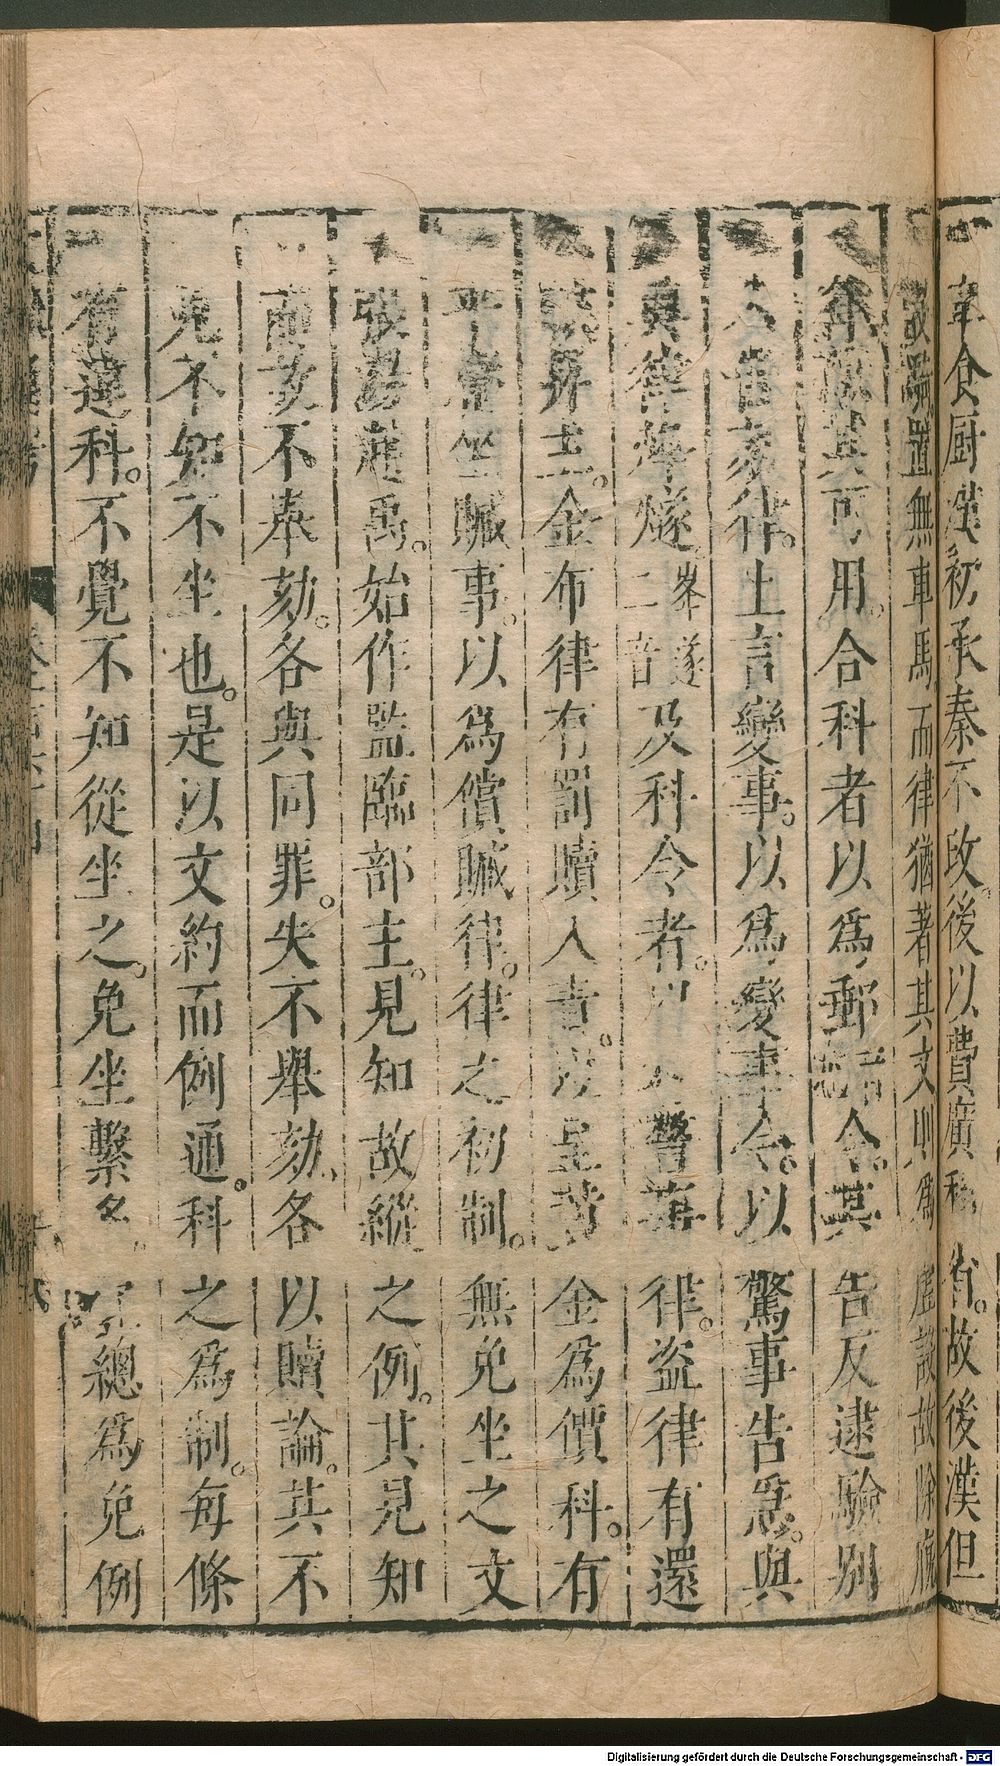 車食厨漢初承秦不改後以費廣稍省。故後漢但
設騎置無車馬而律猶著其文則爲虛設故除廐
律取其可用。合科者以爲郵令。其告反逮驗別
入告劾律。上言變事。以爲變事令。以驚事告急。與
興律烽燧峯遂二音及科令者。以警事律。盜律有還
贓畀主。金布律有罰贖入責。以呈黃金爲價科。有
平庸坐贓事。以爲償贓律。律之初制。無免坐之文
張湯趙禹。始作監臨部主。見知故縱之例。其見知
而故不奉劾。各與同罪。失不舉劾、各以贖論。其不
見不知不坐也。是以文約而例通。科之爲制。每條
有違科。不覺不知從坐之。免坐繫多。總爲免例
Digitalisierung gefördert durch die Deutsche Forschungsgemeinschaft - DFG